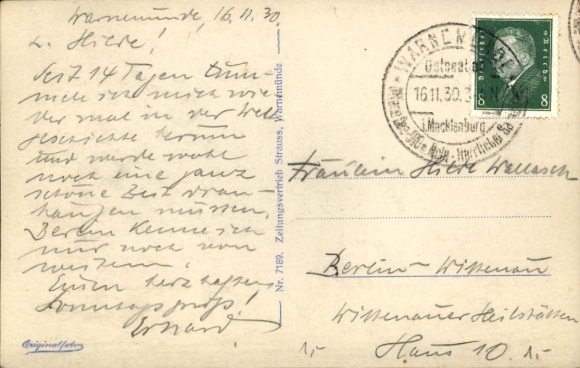 Warnemünde, 16.11.30.
L. Hilde!
Seit 14 Tagen tum-
mele ich mich wie-
der mal in der Welt
geschichte herum
und werde wohl
noch eine ganz
schöne Zeit dran-
hängen müssen.
Berlin kenne ich
nur noch von
weitem.
Einen herzhaften
Sonntagsgruß!
Erhard.
Originalfoto
Nr. 7189. Zeitungsvertrieb Strauss, Warnemünde
WARNEMÜNDE
Ostseebad
16.11.30.
i. Mecklenburg
8 8
Fräulein Hilde Wallasch
Berlin-Wittenau
Wittenauer Heilstätten
Haus 10.
1,- 1,-